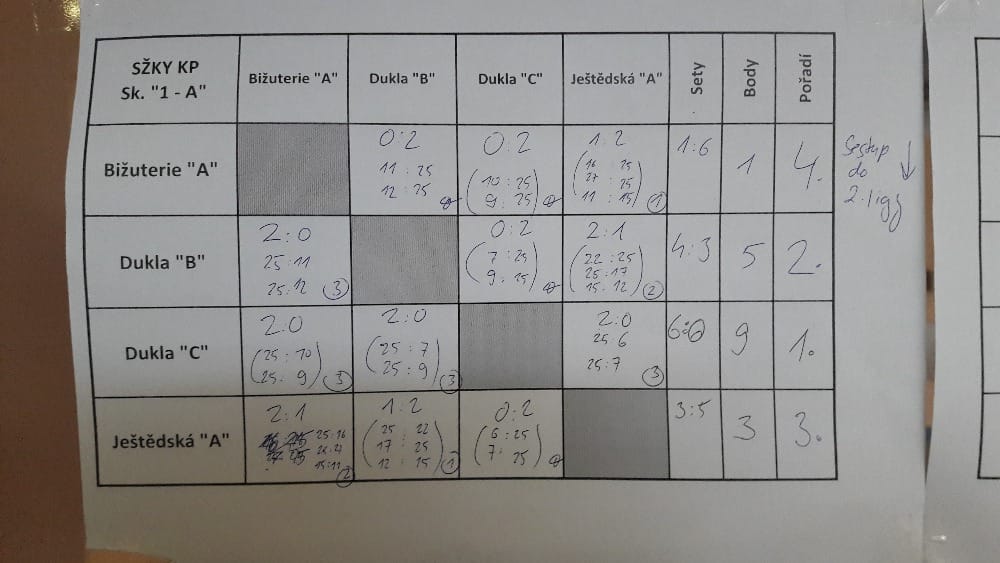 SŽKY KP
Sk. "1 - A"
Bižuterie "A"
Dukla "B"
Dukla "C"
Ještědská "A"
Sety
Body
Pořadí
Bižuterie "A"
0:2
11 : 25
12 : 25
0
0:2
(10 : 25
9 : 25)
0
1:2
(16 : 25
27 : 25
11 : 15)
1
1:6
1
4.
Sestup
do
2. ligy
Dukla "B"
2:0
25:11
25:12
3
0:2
(7 : 25
9 : 25)
0
2:1
(22 : 25
25:17
15:12)
2
4:3
5
2.
Dukla "C"
2:0
(25 : 10
25 : 9)
3
2:0
(25 : 7
25 : 9)
3
2:0
25:6
25:7
3
6:0
9
1.
Ještědská "A"
2:1
25:16
25:27
15:11
2
1:2
(25 : 22
17 : 25
12 : 15)
1
0:2
(6 : 25
7 : 25)
0
3:5
3
3.